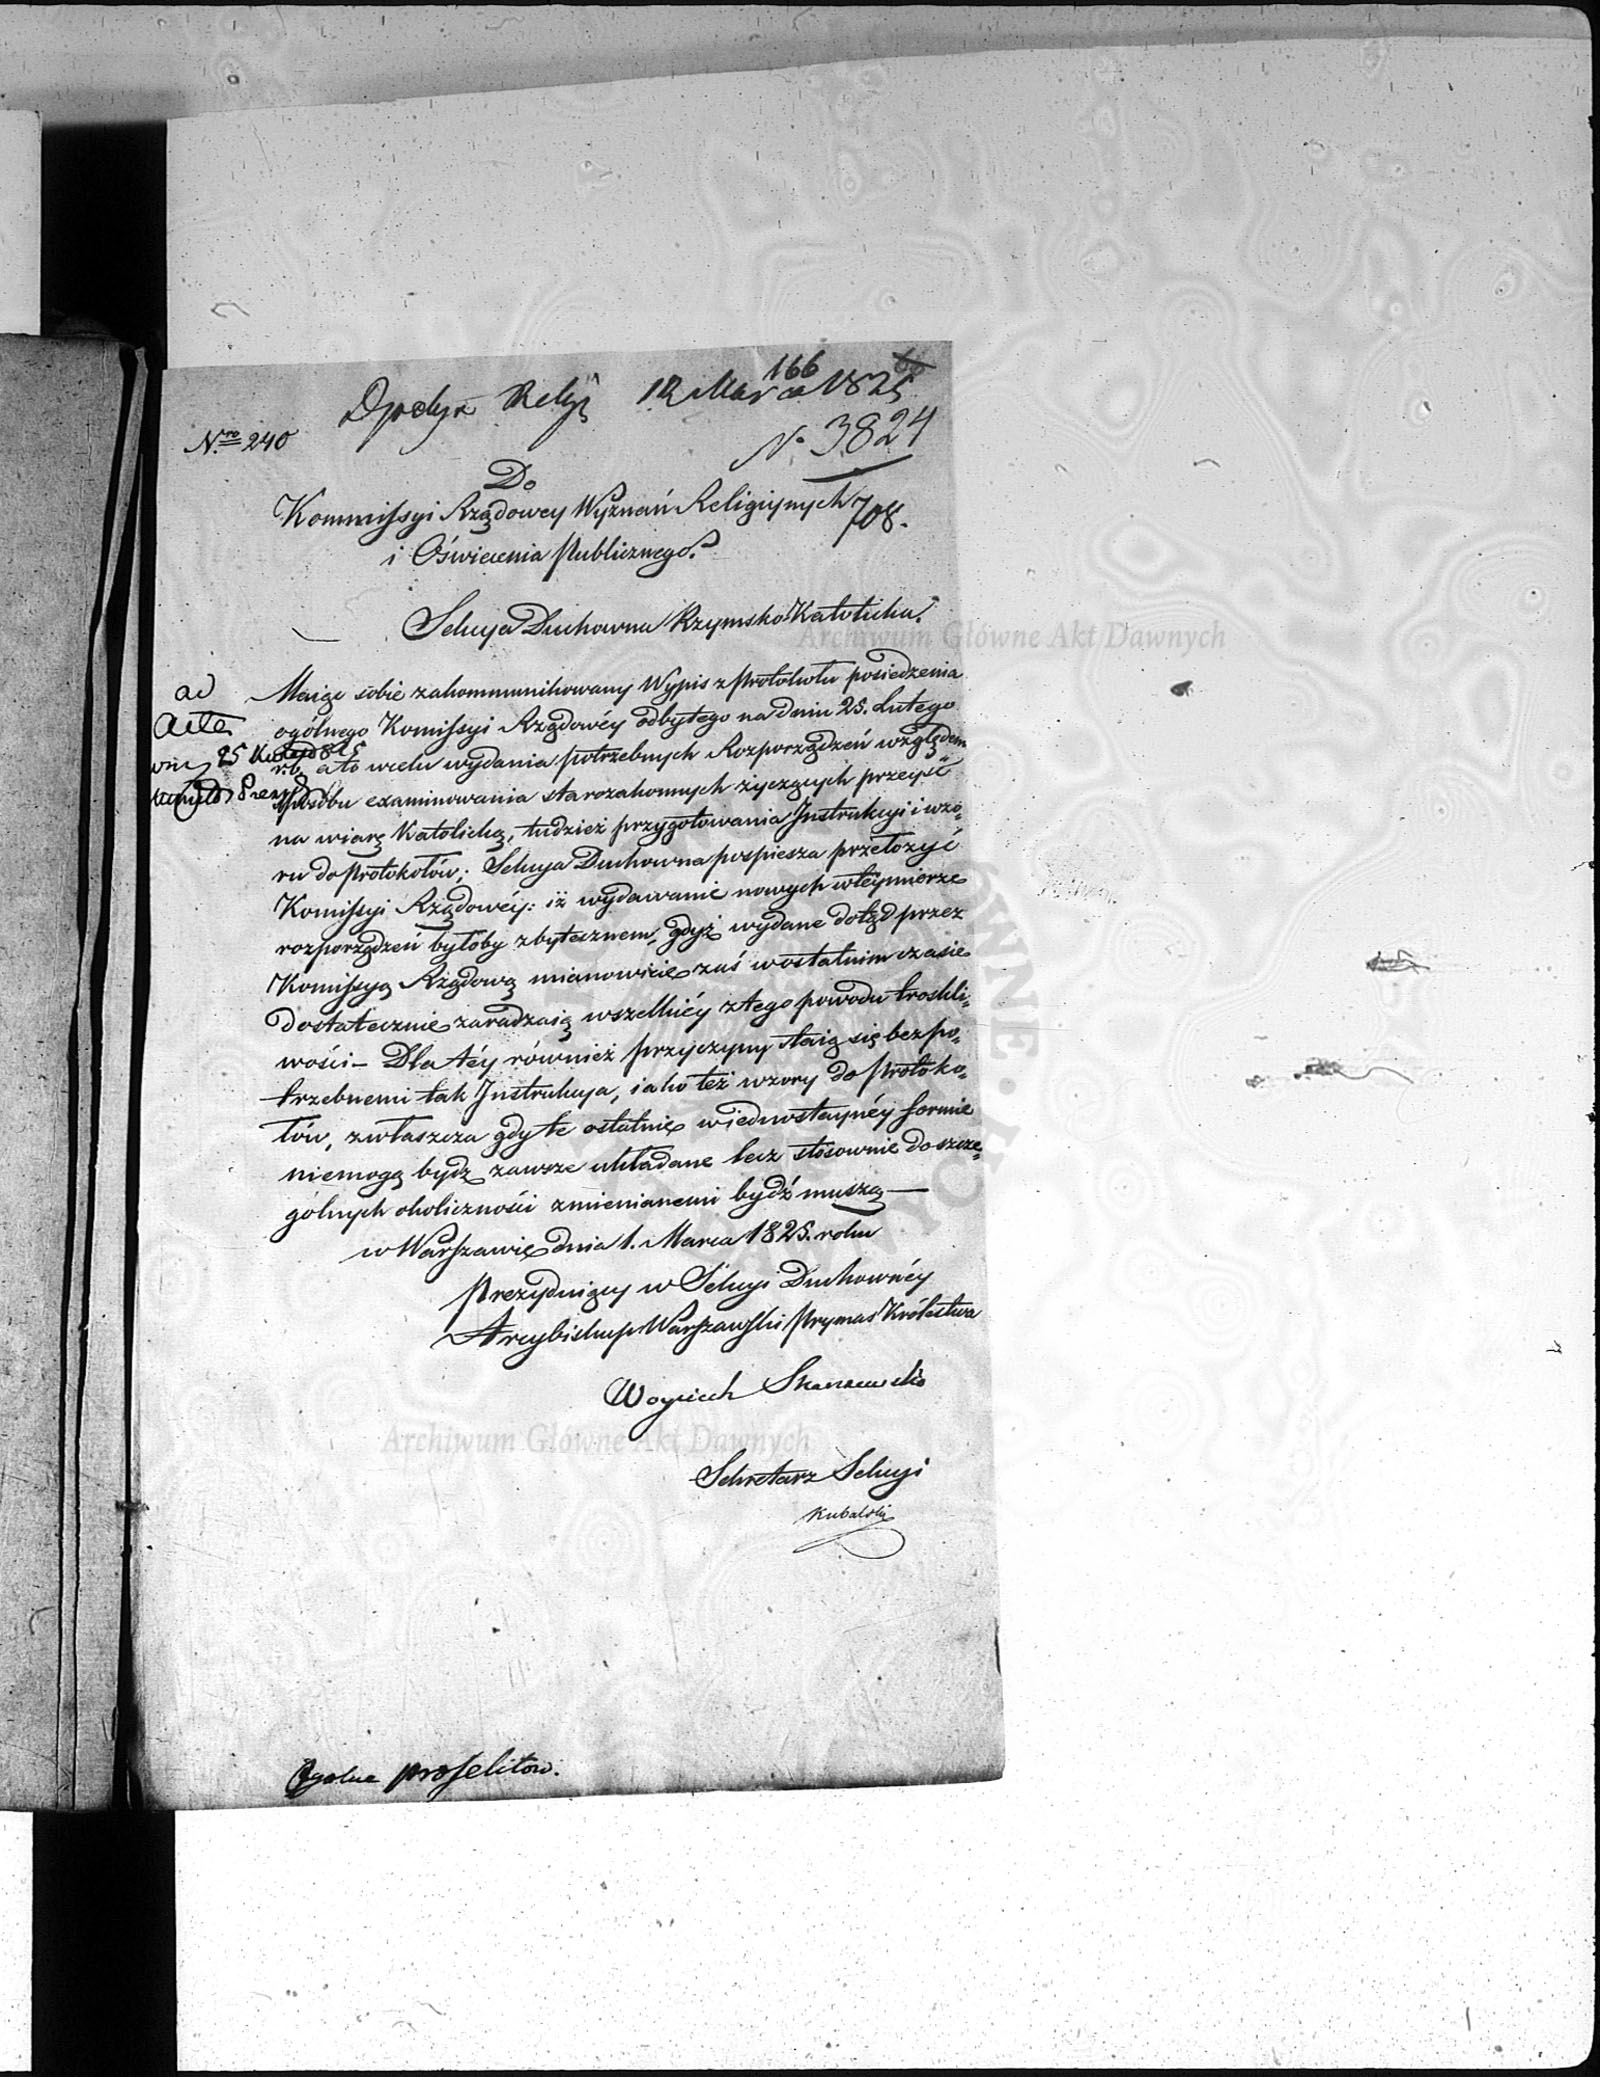 166
Dyrekcyi Religi 12 Marca 1825
Nro 240
N. 3824
708.
Do
Kommissyi Rządowey Wyznań Religiynych
i Oświecenia Publicznego.
Sekcya Duchowna Rzymsko Katolicka.
ad
acta
25 Kwiet 825
Maiąc sobie zakommunikowany Wypis z Protokołu posiedzenia
ogólnego Komissyi Rządowéy odbytego na dniu 25. Lutego
r.b. a to w celu wydania potrzebnych Rozporządzeń względem
sposobu examinowania starozakonnych życzących przeyść
na wiarę Katolicką, tudzież przygotowania Instrukcyi i wzo-
ru do Protokołów; Sekcya Duchowna pospiesza przełożyć
Komissyi Rządowéy: iż wydawanie nowych w téy mierze
rozporządzeń byłoby zbytecznem, gdyż wydane dotąd przez
Komissyą Rządową mianowicie zaś w ostatnim czasie
dostatecznie zaradzaią wszelkiéy z tego powodu troskli-
wości – Dla téy również przyczyny staią się bezpo-
trzebnemi tak Instrukcya, iako też wzory do Protoko-
łów, zwłaszcza gdy te ostatnie w iednostaynéy formie
niemogą bydź zawsze układane lecz stosownie do szcze-
gólnych okoliczności zmienianemi bydź muszą —
w Warszawie dnia 1. Marca 1825. roku
Prezyduiący w Sekcyi Duchownéy
Arcybiskup Warszawski Prymas Królestwa
Woyciech Skarszewski
Sekretarz Sekcyi
Kubalski
Ogólne proselitow.
Archiwum Główne Akt Dawnych
Archiwum Główne Akt Dawnych